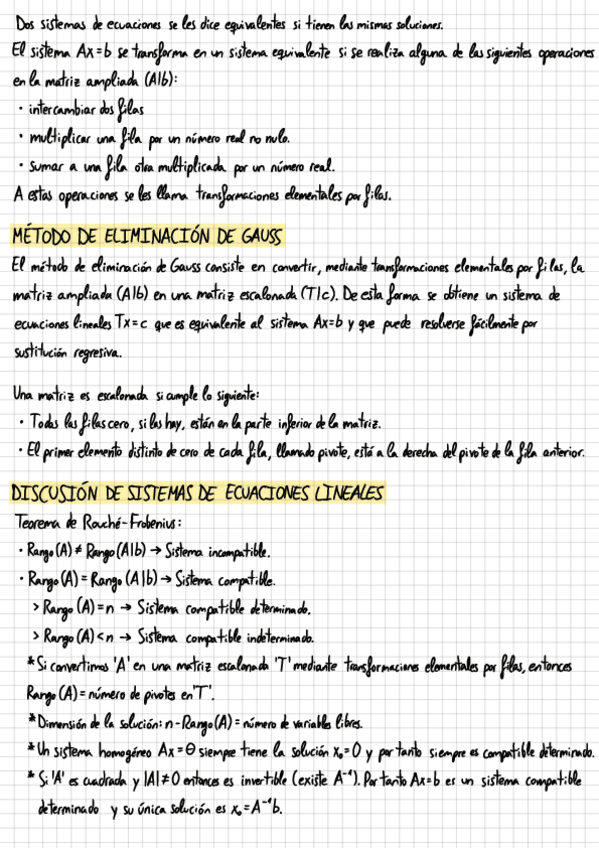 Dos sistemas de ecuaciones se les dice equivalentes si tienen las mismas soluciones.
El sistema Ax=b se transforma en un sistema equivalente si se realiza alguna de las siguientes operaciones
en la matriz ampliada (A|b):
· intercambiar dos filas
· multiplicar una fila por un número real no nulo.
· sumar a una fila otra multiplicada por un número real.
A estas operaciones se les llama transformaciones elementales por filas.
MÉTODO DE ELIMINACIÓN DE GAUSS
El método de eliminación de Gauss consiste en convertir, mediante transformaciones elementales por filas, la
matriz ampliada (A|b) en una matriz escalonada (T|c). De esta forma se obtiene un sistema de
ecuaciones lineales Tx=c que es equivalente al sistema Ax=b y que puede resolverse fácilmente por
sustitución regresiva.
Una matriz es escalonada si cumple lo siguiente:
· Todas las filas cero, si las hay, están en la parte inferior de la matriz.
· El primer elemento distinto de cero de cada fila, llamado pivote, está a la derecha del pivote de la fila anterior.
DISCUSIÓN DE SISTEMAS DE ECUACIONES LINEALES
Teorema de Rouché-Frobenius:
· Rango(A) ≠ Rango(A|b) → Sistema incompatible.
· Rango(A) = Rango(A|b) → Sistema compatible.
> Rango(A)=n → Sistema compatible determinado.
> Rango(A)<n → Sistema compatible indeterminado.
* Si convertimos 'A' en una matriz escalonada 'T' mediante transformaciones elementales por filas, entonces
Rango(A) = número de pivotes en 'T'.
* Dimensión de la solución: n-Rango(A) = número de variables libres.
* Un sistema homogéneo Ax=Θ siempre tiene la solución x₀=0 y por tanto siempre es compatible determinado.
* Si 'A' es cuadrada y |A|≠0 entonces es invertible (existe A⁻¹). Por tanto Ax=b es un sistema compatible
determinado y su única solución es x₀=A⁻¹b.